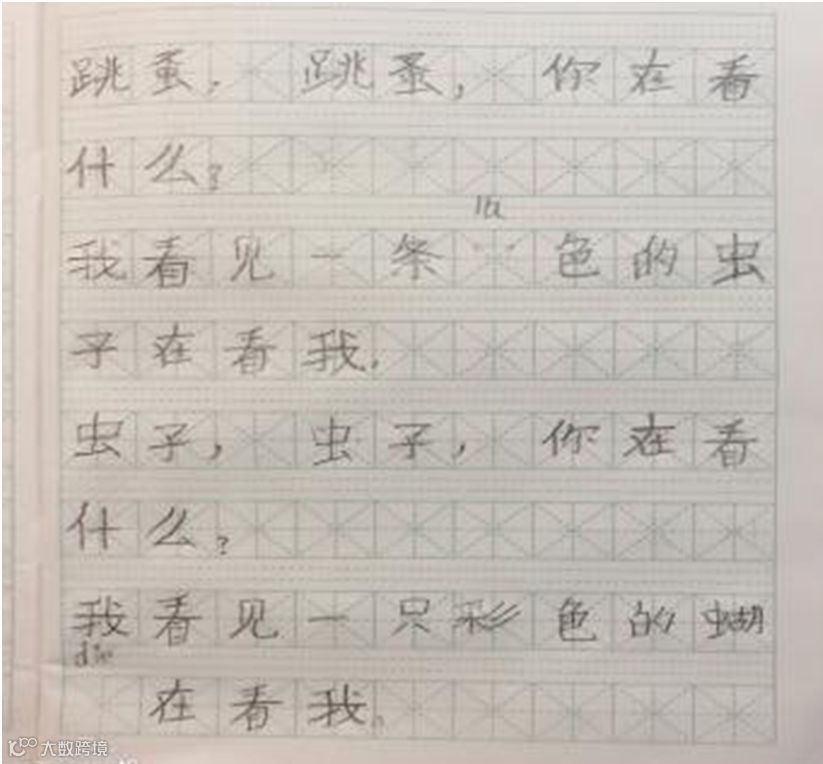 跳蚤，跳蚤，你在看
什么？
我看见一条 色的虫
子在看我.
虫子，虫子，你在看
什么？
我看见一只彩色的蝴
die
在看我。
大数跨境